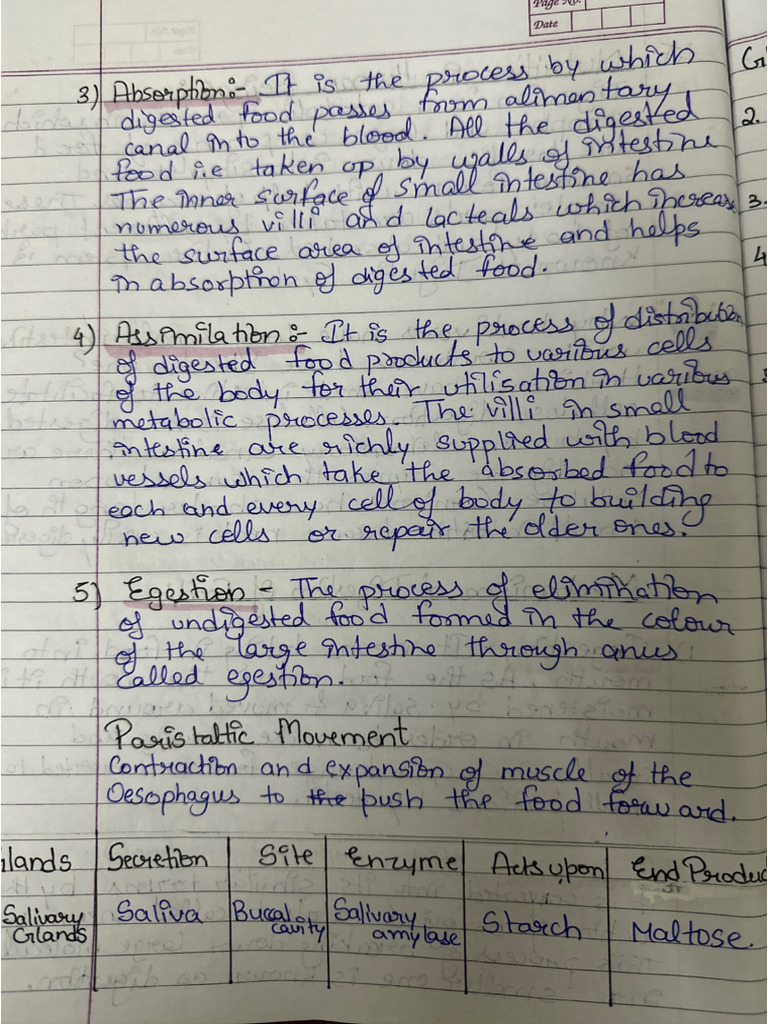 Page No.
Date
3) Absorption:- It is the process by which
digested food passes from alimentary
canal into the blood. All the digested
food i.e taken op by walls of intestine
The inner surface of small intestine has
numerous villi and lacteals which increas
the surface area of intestine and helps
in absorption of digested food.
4) Assimilation :- It is the process of distribution
of digested food products to various cells
of the body for their utilisation in various
metabolic processes. The villi in small
intestine are richly supplied with blood
vessels which take the absorbed food to
each and every cell of body to building
new cells or repair the older ones.
5) Egestion - The process of elimination
of undigested food formed in the colour
of the large intestine through anus
called egestion.
Paristaltic Movement
Contraction and expansion of muscle of the
Oesophagus to the push the food forward.
lands Secretion Site Enzyme Acts upon End Produc
Salivary Glands Saliva Buccal cavity Salivary amylase Starch Maltose.
G
2.
3.
4